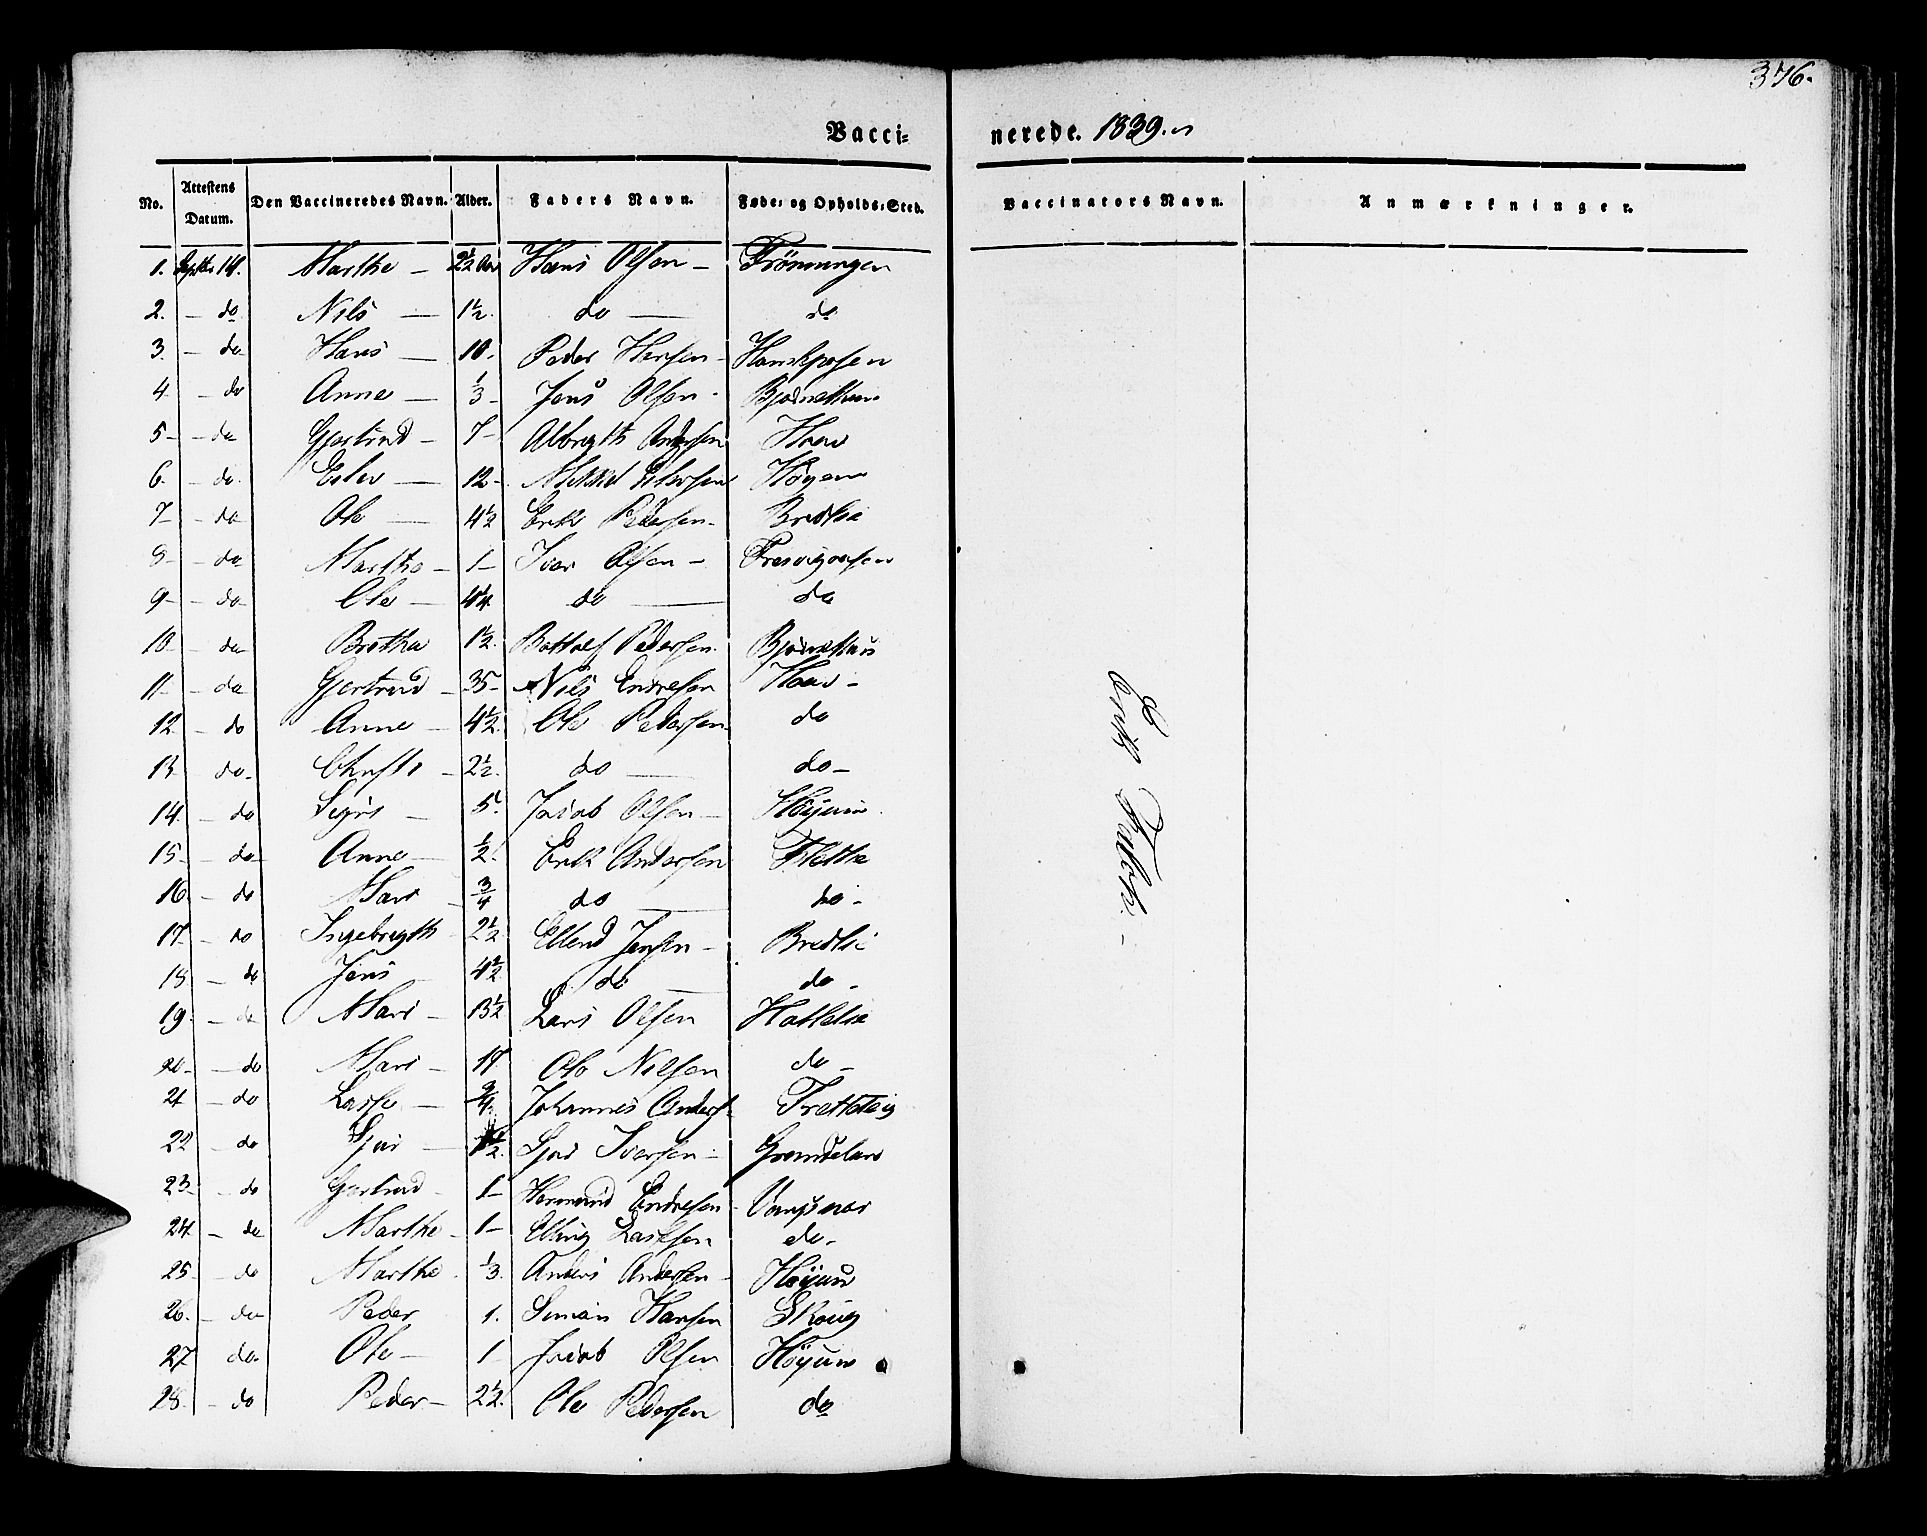 376.
Vacci-
nerede. 1839.
No. Attestens Datum. Den Vaccineredes Navn. Alder. Faders Navn. Føde- og Opholds-Sted. Vaccinators Navn. Anmærkninger.
1. Septbr 14. Marthe — 2½ Aar Hans Olsen — Frönningen
2. — do Nils — 1½. do — do
3. — do Hans — 10. Peder Hansen —
4 — do Anne — ⅓ — Jens Olsen -
5 — do Gjertrud — 7 —
6. — do 12 — Höyem
7 — do Ole — 4½ Erik Pedersen. Bredlie
8 — do Marthe — 1 — Iver Olsen —
9 — do Ole — 4¼. do — do
10 — do Brethe 1½. Bottolf Pedersen.
11 — do Gjertrud — 35 — Nils Endresen
12. — do Anne — 4½. Ole Pedersen do
13 do — 2½. do — do —
14. — do Sigri — 5. Jacob Olsen — Höyum
15 — do Anne — ½. Erik Andersen
16. — do Mari ¾ do do -
17. — do Ingebregth 2½ Ellend Jensen — Bredlie
18 — do Jens 4½. do — do -
19. — do Mari — 13½ Lars Olsen Hattelie
20 — do Mari — 17. Ole Nilsen do —
21 — do Lasse — ¾. Johannes Anders.
22 — do Sjur — Sjur Iversen
23 — do Gjertrud 1 — Hermund Endresen
24. — do Marthe — 1 — Elling Lassesen do -
25 — do Marthe ⅓. Anders Andersen — Höyum
26. — do Peder 1. Simon Hansen Skoug
27 do. Ole — 1 Jacob Olsen Höyum
28. — do Peder — 2½. Ole Pedersen do
Erik